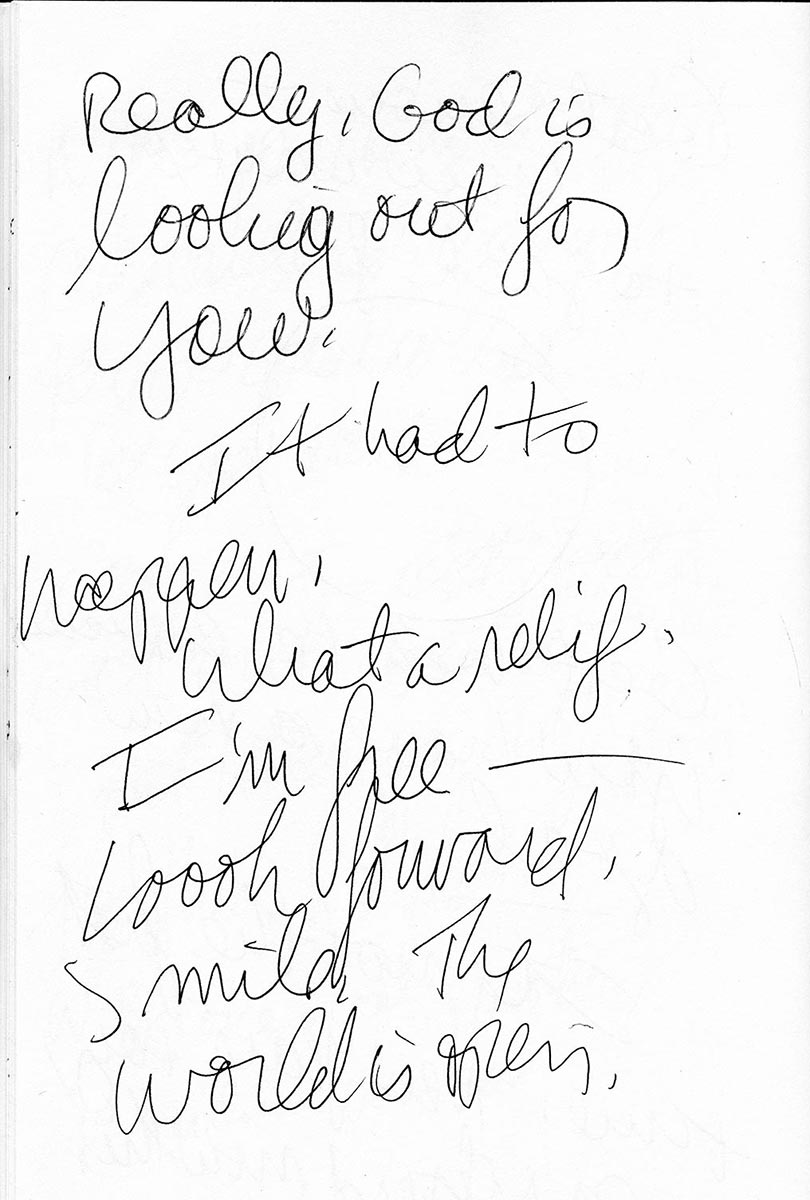 Really, God is
looking out for
you.
It had to
happen.
What a relif.
I'm free —
Loook forward.
Smile. The
world is open.